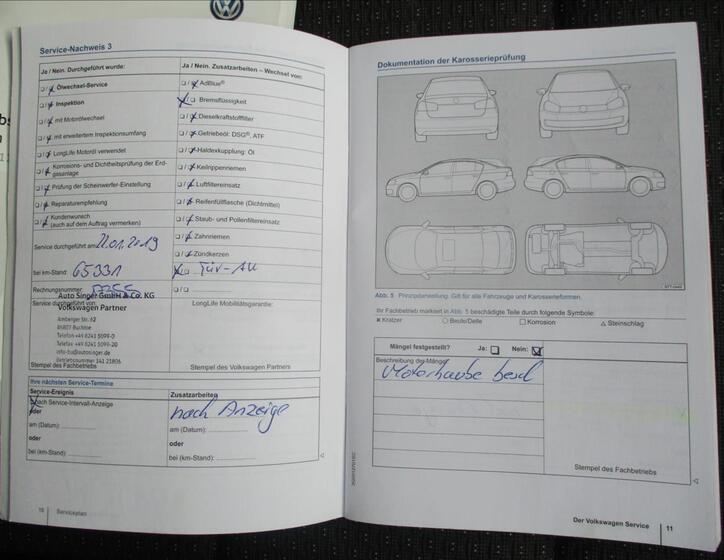 Service-Nachweis 3
Ja / Nein. Durchgeführt wurde:
Ja / Nein. Zusatzarbeiten – Wechsel von:
Ölwechsel-Service
AdBlue®
Inspektion
Bremsflüssigkeit
mit Motorölwechsel
Dieselkraftstofffilter
mit erweitertem Inspektionsumfang
Getriebeöl: DSG®, ATF
LongLife Motoröl verwendet
Haldexkupplung: Öl
Korrosions- und Dichtheitsprüfung der Erd-
gasanlage
Keilrippenriemen
Prüfung der Scheinwerfer-Einstellung
Luftfiltereinsatz
Reparaturempfehlung
Reifenfüllflasche (Dichtmittel)
Kundenwunsch
(auch auf dem Auftrag vermerken)
Staub- und Pollenfiltereinsatz
Zahnriemen
Service durchgeführt am 22.01.2019
Zündkerzen
bei km-Stand: 65331
TÜV-AU
Rechnungsnummer:
Service durchgeführt von:
LongLife Mobilitätsgarantie:
Auto Singer GmbH & Co. KG
Volkswagen Partner
Amberger Str. 62
86807 Buchloe
Telefon +49 8241 5099-0
Telefax +49 8241 5099-20
info-bu@autosinger.de
Betriebsnummer 341 23806
Stempel des Fachbetriebs
Stempel des Volkswagen Partners
Ihre nächsten Service-Termine
Service-Ereignis
Zusatzarbeiten
nach Service-Intervall-Anzeige
nach Anzeige
oder
am (Datum):
am (Datum):
oder
oder
bei (km-Stand):
bei (km-Stand):
10
Serviceplan
Dokumentation der Karosserieprüfung
Abb. 5 Prinzipdarstellung. Gilt für alle Fahrzeuge und Karosserieformen.
Ihr Fachbetrieb markiert in Abb. 5 beschädigte Teile durch folgende Symbole:
× Kratzer
○ Beule/Delle
□ Korrosion
△ Steinschlag
Mängel festgestellt?
Ja:
Nein:
Beschreibung der Mängel:
Motorhaube besch
Stempel des Fachbetriebs
Der Volkswagen Service
11